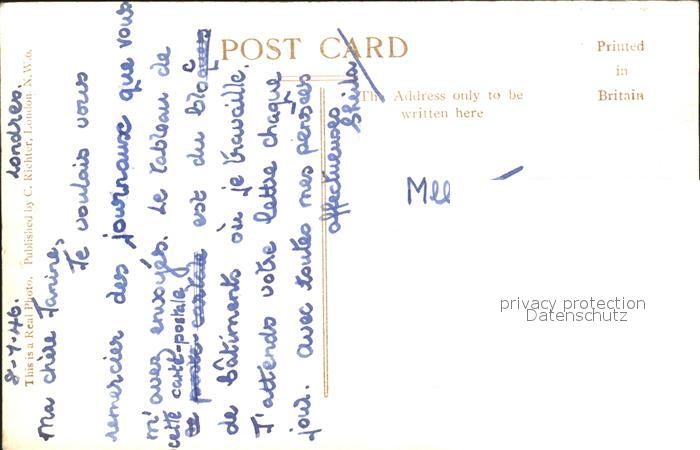 POST CARD
Printed
in
Britain
The Address only to be
written here
This is a Real Photo. Published by C. Richter, London, N.W.6.
8-7-46. Londres.
Ma chère Janine,
Je voulais vous
remercier des journaux que vous
m'avez envoyés. Le tableau de
cette carte-postale
est du bloc
de bâtiments où je travaille.
J'attends votre lettre chaque
jour. avec toutes mes pensées
affectueuses
Sheila
Mll
privacy protection
Datenschutz